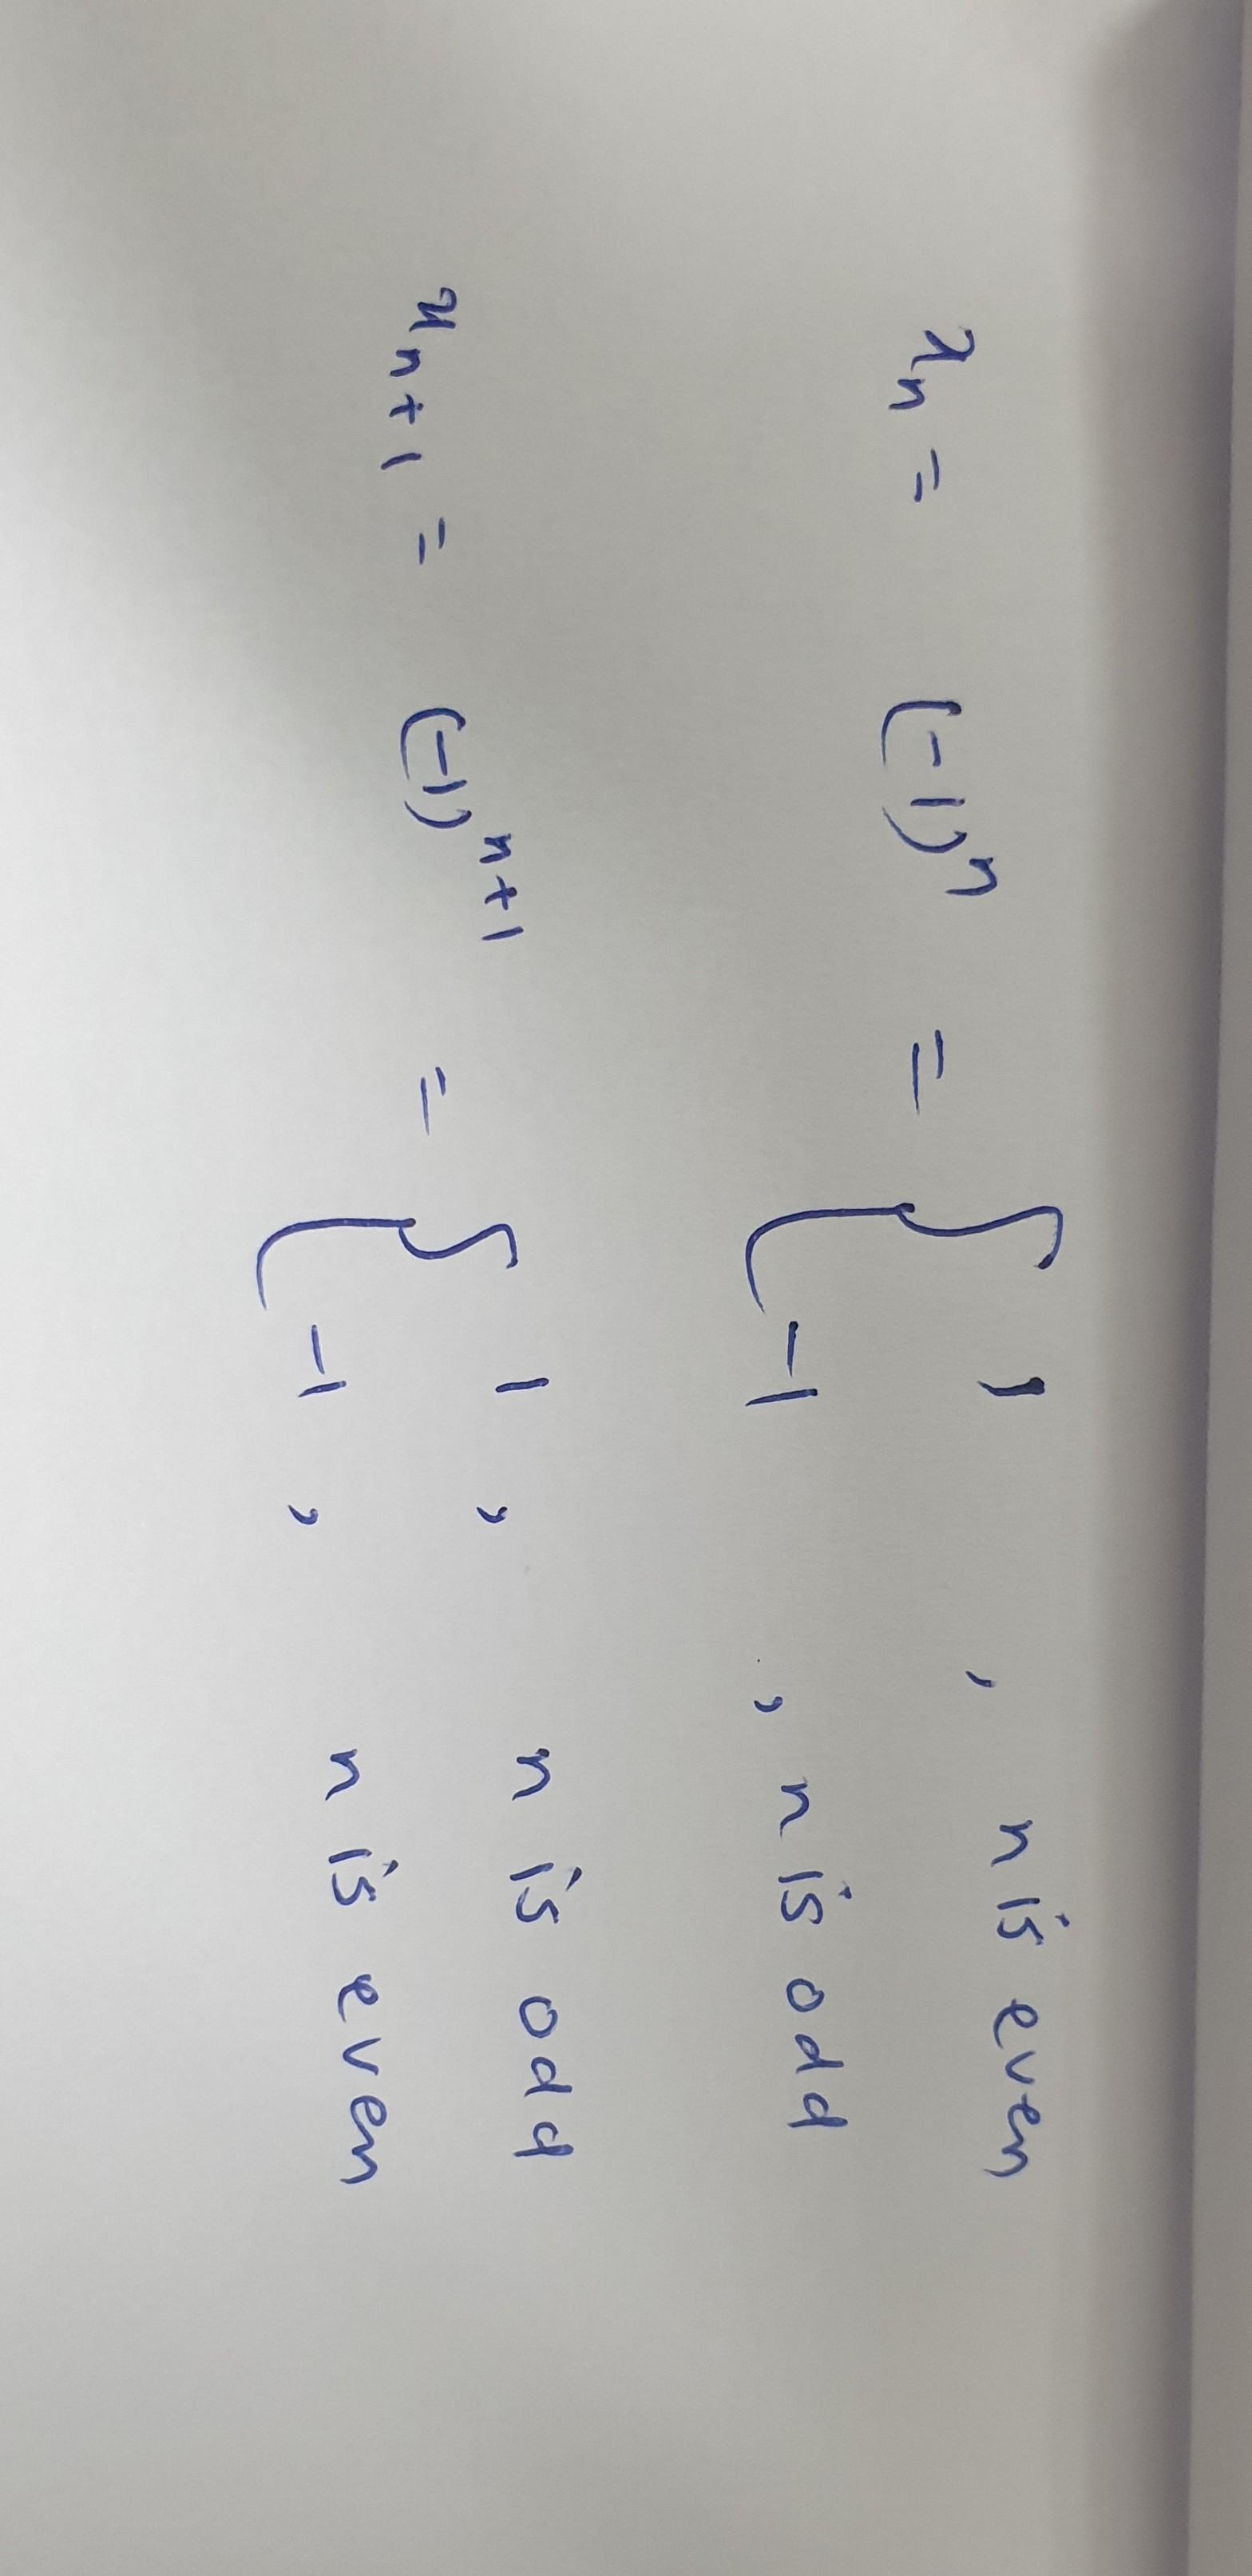 xₙ = (-1)ⁿ = { 1 , n is even
-1 , n is odd
xₙ₊₁ = (-1)ⁿ⁺¹ = { 1 , n is odd
-1 , n is even